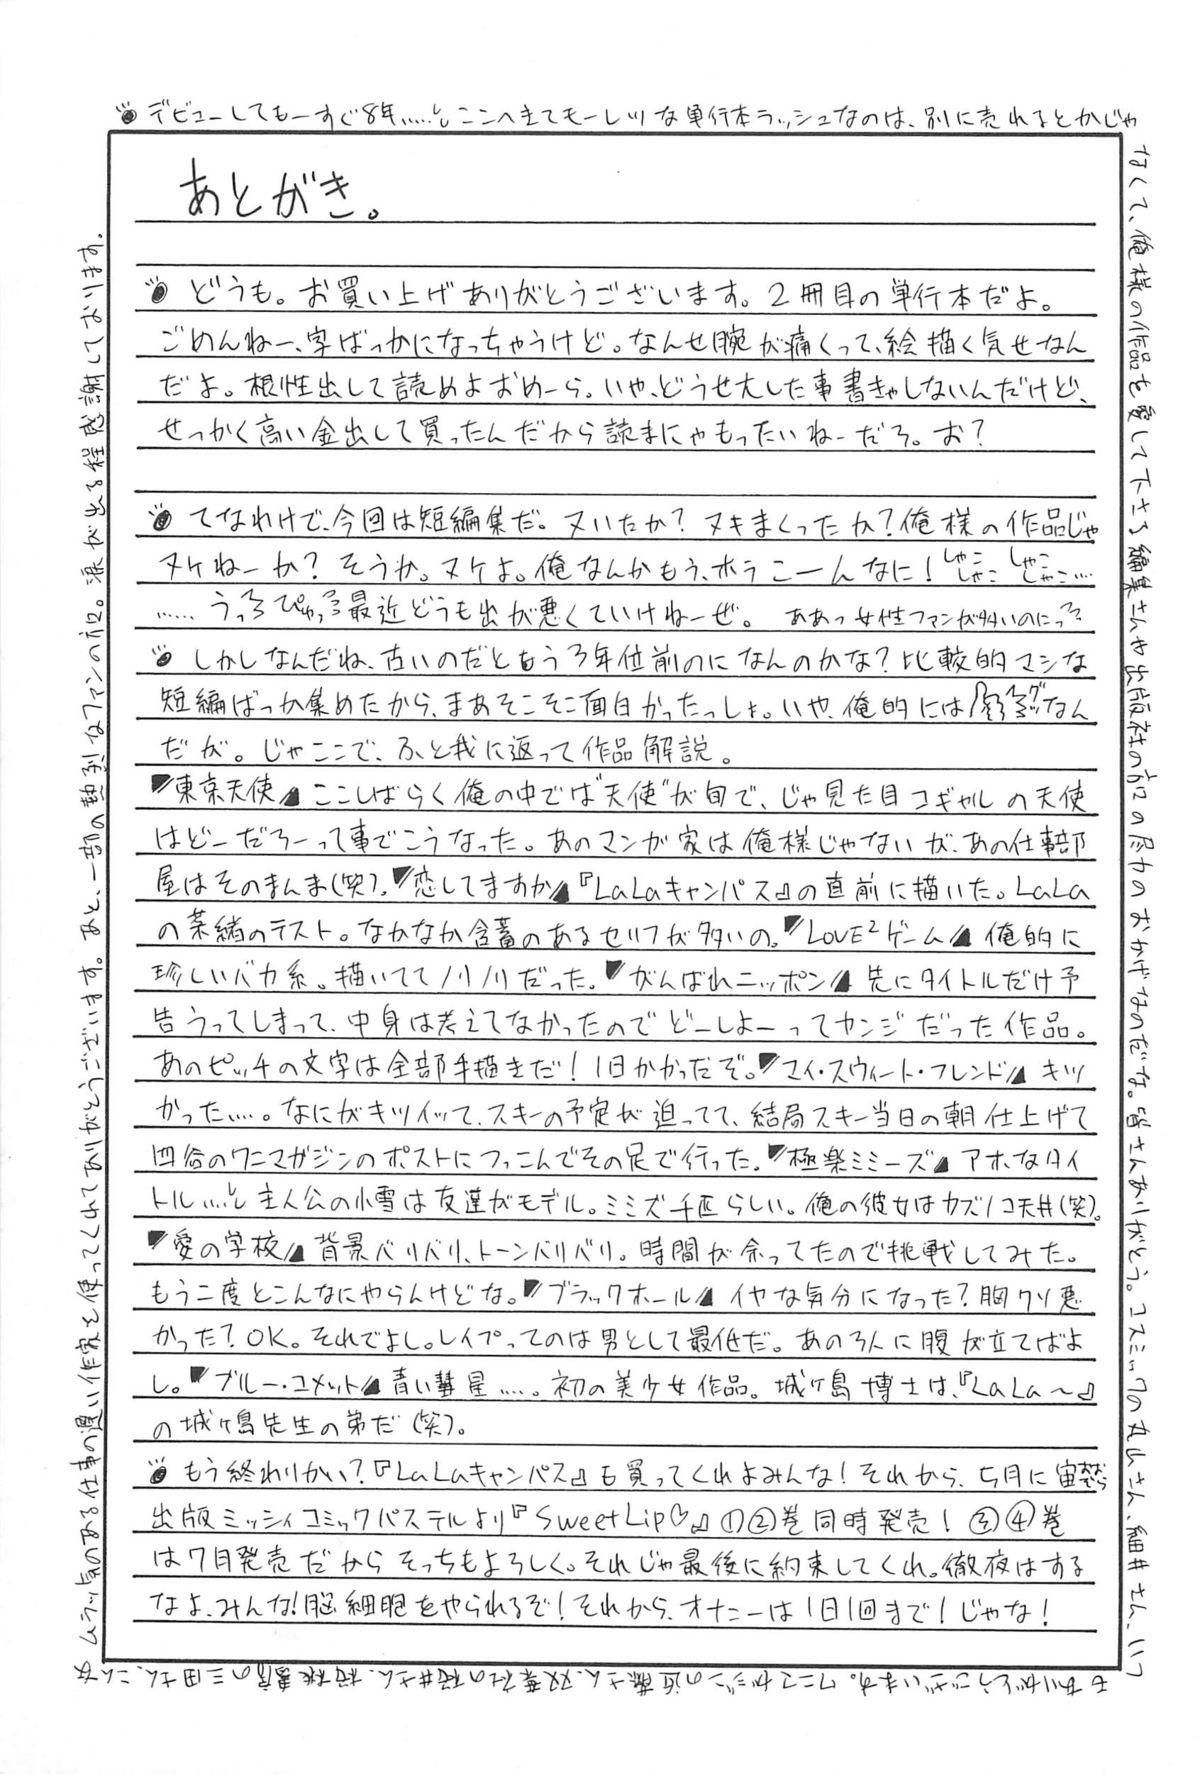 デビューしてもーすぐ8年……。ここへきてモーレツな単行本ラッシュなのは、別に売れるとかじゃ
なくて、俺様の作品を愛して下さる編集さんや出版社の方の尽力のおかげなのだな。皆さんありがとう。コスミックの丸山さん、細井さん、いつ
もありがとうございます。ワニマガジンの近藤さん、双葉社の桜井さん、桜桃書房の三田さん、こんな
ムラッ気のある仕事の遅い作家を使ってくれてありがとうございます。あと、一部の熱烈なファンの方。涙が出る程感謝しております。
あとがき。
どうも。お買い上げありがとうございます。2冊目の単行本だよ。
ごめんねー、字ばっかになっちゃうけど。なんせ腕が痛くって、絵描く気せなん
だよ。根性出して読めよおめーら。いや、どうせ大した事書きゃしないんだけど、
せっかく高い金出して買ったんだから読まにゃもったいねーだろ。お?
てなわけで、今回は短編集だ。ヌいたか?ヌキまくったか?俺様の作品じゃ
ヌケねーか?そうか。ヌケよ。俺なんかもう、ホラこーんなに!しゃこしゃこしゃこしゃこ….
…… うっぴゅっ最近どうも出が悪くていけねーぜ。ああっ女性ファンが多いのにっ
しかしなんだね、古いのだともう3年位前のになんのかな?比較的マシな
短編ばっか集めたから、まあそこそこ面白かったっしょ。いや、俺的には なん
だが。じゃここで、ふと我に返って作品解説。
"東京天使" ここしばらく俺の中では"天使"が旬で、じゃ見た目コギャルの天使
はどーだろーって事でこうなった。あのマンガ家は俺様じゃないが、あの仕事部
屋はそのまんま(笑)。"恋してますか"『LaLaキャンパス』の直前に描いた。LaLa
の茶緒のテスト。なかなか含蓄のあるセリフが多いの。"LOVE²ゲーム" 俺的に
珍しいバカ系。描いててノリノリだった。"がんばれニッポン" 先にタイトルだけ予
告うってしまって、中身は考えてなかったのでどーしよーってカンジだった作品。
あのピッチの文字は全部手描きだ!1日かかったぞ。"マイ・スウィート・フレンド" キツ
かった….。なにがキツイって、スキーの予定が迫ってて、結局スキー当日の朝仕上げて
四谷のワニマガジンのポストにつっこんでその足で行った。"極楽ミミーズ" アホなタイ
トル….。主人公の小雪は友達がモデル。ミミズ千匹らしい。俺の彼女はカズノコ天井(笑)。
"愛の学校" 背景バリバリ、トーンバリバリ。時間が余ってたので挑戦してみた。
もう二度とこんなにやらんけどな。"ブラックホール" イヤな気分になった?胸クソ悪
かった?OK。それでよし。レイプってのは男として最低だ。あの3人に腹が立てばよ
し。"ブルー・コメット" 青い彗星….。初の美少女作品。城ヶ島博士は、『LaLa〜』
の城ヶ島先生の弟だ(笑)。
もう終わりかい?『LaLaキャンパス』も買ってくれよみんな!それから、5月に宙
出版ミッシィコミックパステルより『Sweet Lip♡』の①②巻同時発売!③④巻
は7月発売だからそっちもよろしく。それじゃ最後に約束してくれ。徹夜はする
なよ、みんな!脳細胞をやられるぞ!それから、オナニーは1日1回まで!じゃな!